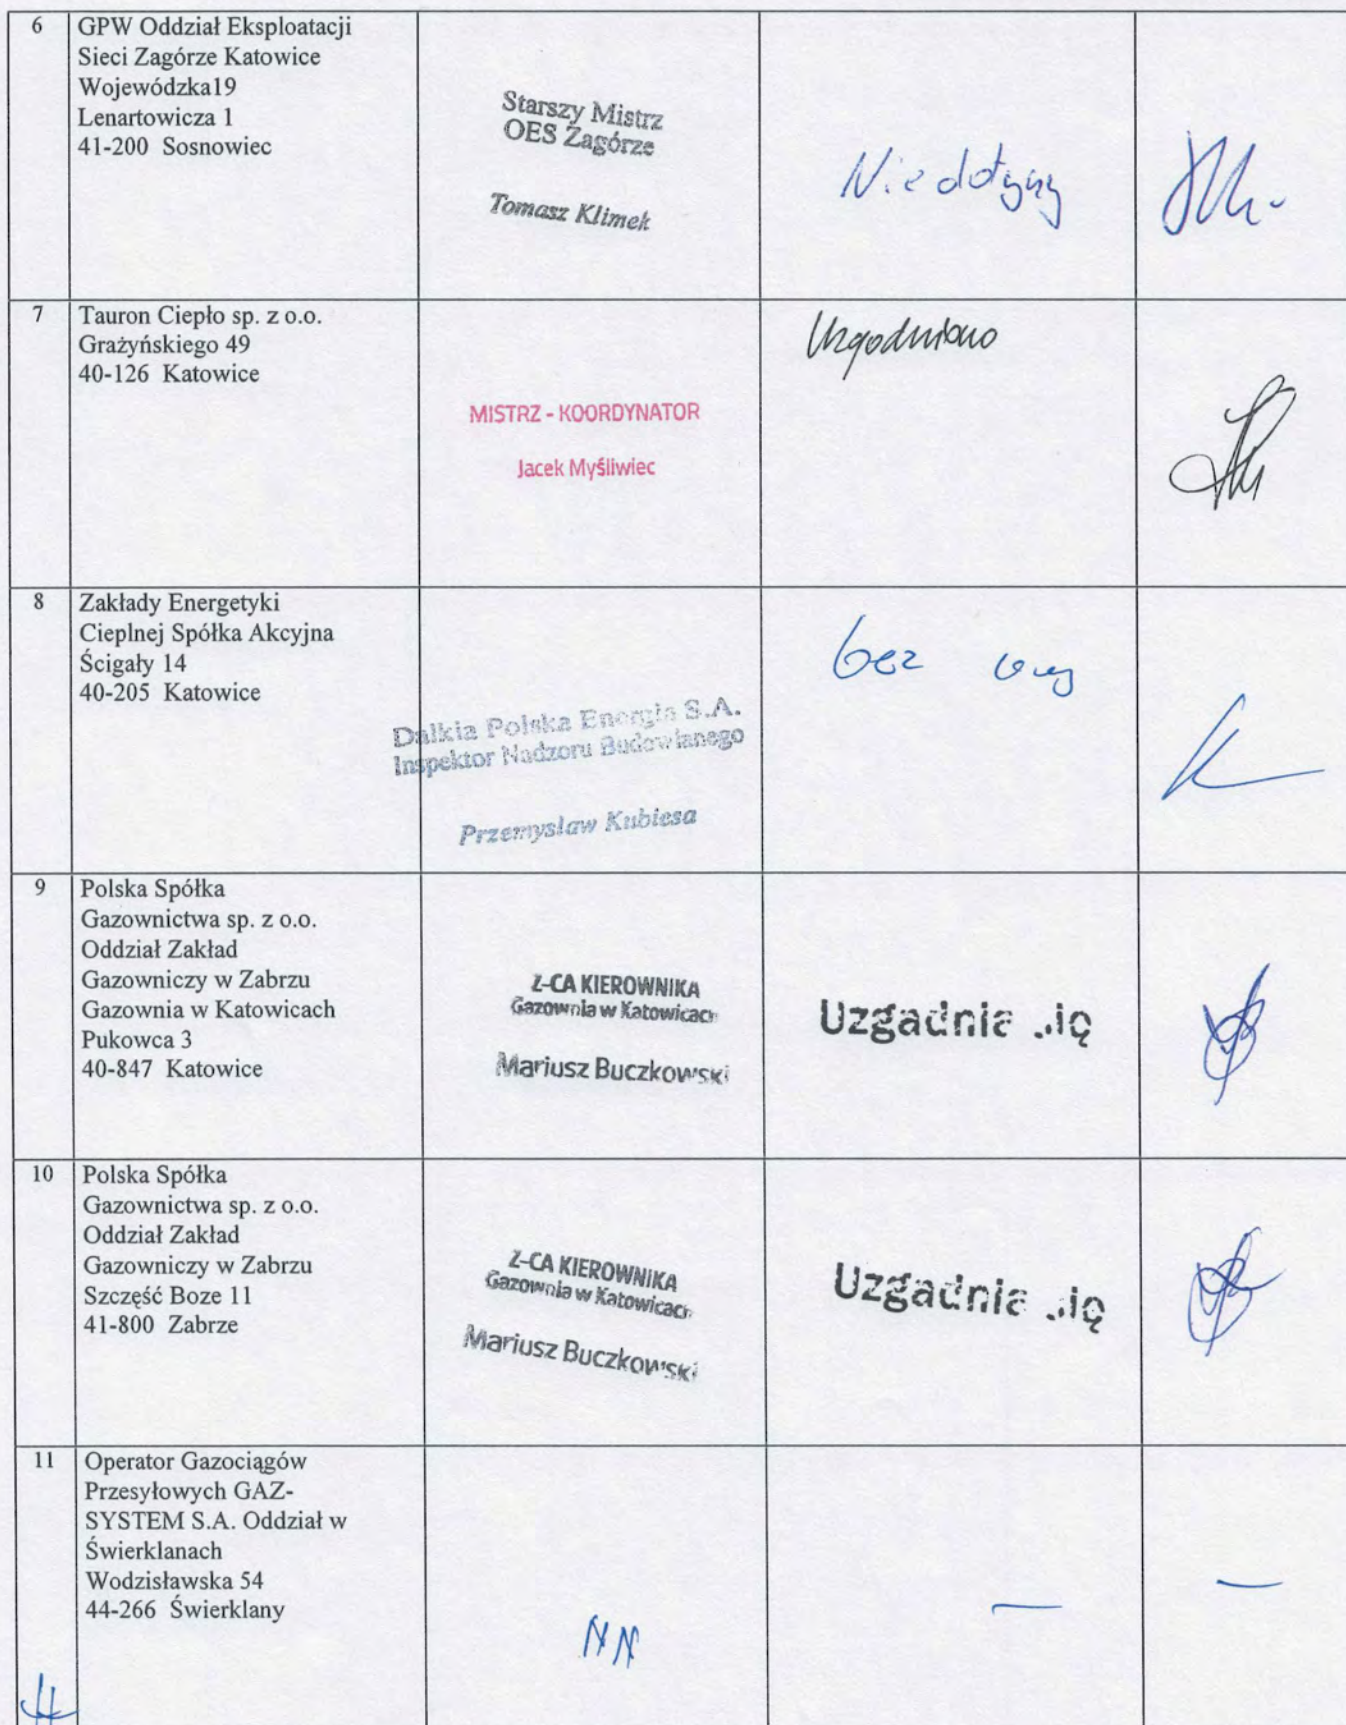 6
GPW Oddział Eksploatacji
Sieci Zagórze Katowice
Wojewódzka19
Lenartowicza 1
41-200 Sosnowiec
Starszy Mistrz
OES Zagórze
Tomasz Klimek
Nie dotyczy
7
Tauron Ciepło sp. z o.o.
Grażyńskiego 49
40-126 Katowice
MISTRZ - KOORDYNATOR
Jacek Myśliwiec
Uzgodniono
8
Zakłady Energetyki
Cieplnej Spółka Akcyjna
Ścigały 14
40-205 Katowice
Dalkia Polska Energia S.A.
Inspektor Nadzoru Budowlanego
Przemysław Kubiesa
bez
9
Polska Spółka
Gazownictwa sp. z o.o.
Oddział Zakład
Gazowniczy w Zabrzu
Gazownia w Katowicach
Pukowca 3
40-847 Katowice
Z-CA KIEROWNIKA
Gazownia w Katowicach
Mariusz Buczkowski
Uzgadnia się
10
Polska Spółka
Gazownictwa sp. z o.o.
Oddział Zakład
Gazowniczy w Zabrzu
Szczęść Boze 11
41-800 Zabrze
Z-CA KIEROWNIKA
Gazownia w Katowicach
Mariusz Buczkowski
Uzgadnia się
11
Operator Gazociągów
Przesyłowych GAZ-
SYSTEM S.A. Oddział w
Świerklanach
Wodzisławska 54
44-266 Świerklany
NN
—
—